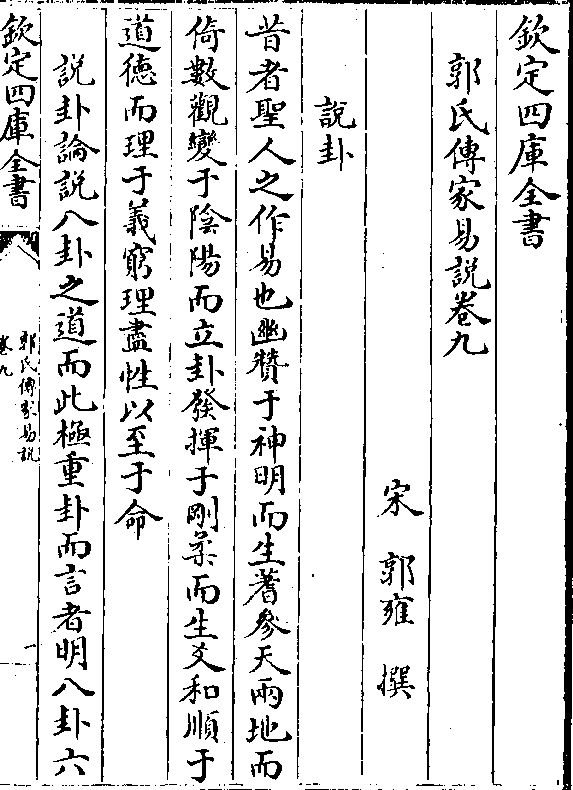 欽定四庫全書
郭氏傳家易說卷九
宋　郭雍　撰
說卦
昔者聖人之作易也幽贊于神明而生蓍參天兩地而
倚數觀變于陰陽而立卦發揮于剛柔而生爻和順于
道德而理于義窮理盡性以至于命
說卦論說八卦之道而此極重卦而言者明八卦六
欽定四庫全書
郭氏傳家易說
卷九
一